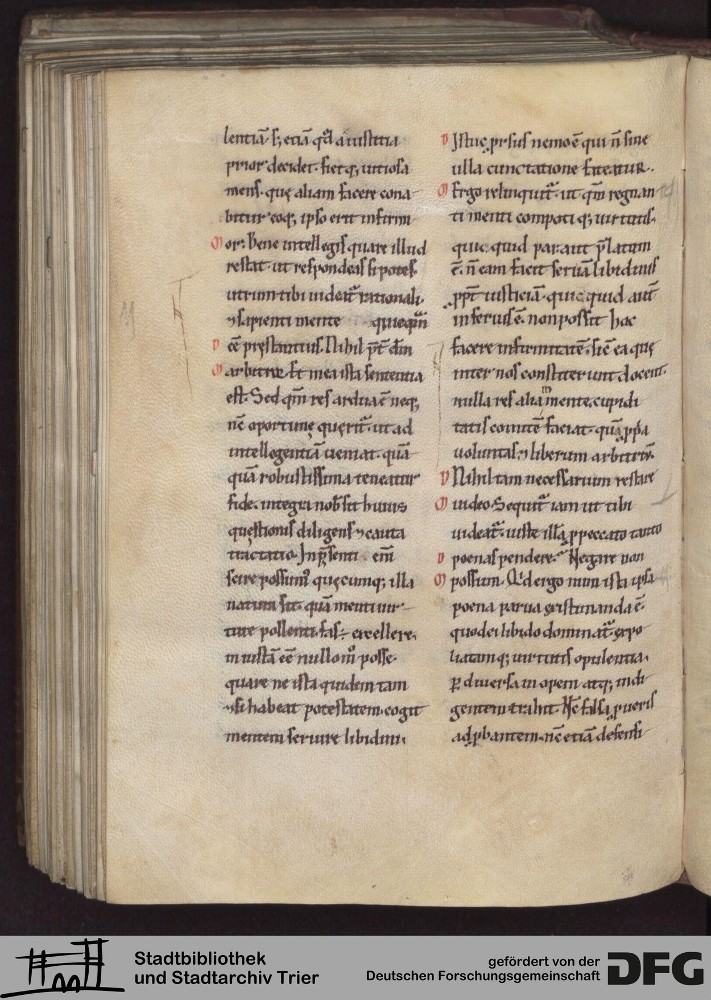 lentiā· s; etiā qđ a iustitia
prior decidet· fietq; uitiosa
mens· quę aliam facere cona
bitur eoq; ipso erit infirmi
or· bene intellegis quare illud
restat· ut respondeas si potes·
utrum tibi uideat rationali·
⁊ sapienti mente quicquā
ēē pręstantius· Nihil pt dm̄
arbitror· Et mea ista sententia
est· Sed qm̄ res ardua ē neq;
nc̄ oportune querit· ut ad
intellegentiā ueniat· quā
quā robustissima teneatur
fide· integri nob sit huius
quęstionis diligens ⁊ cauta
tractatio· In pr̄senti· em̄
scire possum quęcumq; illa
natura sit· quā menti uir
tute pollenti fas ÷ excellere·
iniustā ēē nullo m̊ posse·
quare ne ista quidem tam
⁊ si habeat potestatem· cogit
mentem seruire libidini·
D Istuc prsus nemo ē qui n̄ sine
ulla cunctatione fateatur·
M Ergo relinquit· ut qm̄ regnan
ti menti compoti q; uirtutis·
quic quid par aut pr̄latum
ē· n̄ eam facit seruā libidinis
ppt iusticiam· quic quid aut
inferius ē· non possit hoc
facere infirmitatē· sic ea quę
inter nos constiterunt docent·
nulla res alia mente cupidi
tatis comitē faciat· quā ppa
uoluntas· ⁊ liberum arbitriū·
D Nihil tam necessarium restare
M uideo· Sequit iam ut tibi
uideat· iuste illā p peccato tanto
D poenas pendere· Negare non
M possum· Qd ergo num ista ipsa
poena parua existimanda ē·
quod ei libido dominat· expo
liatamq; uirtutis opulentia·
p diuersa inopem atq; indi
gentem trahit· Nc̄ falsa p ueris
adpbantem· nc̄ etiā defensi
Stadtbibliothek
und Stadtarchiv Trier
gefördert von der
Deutschen Forschungsgemeinschaft
DFG